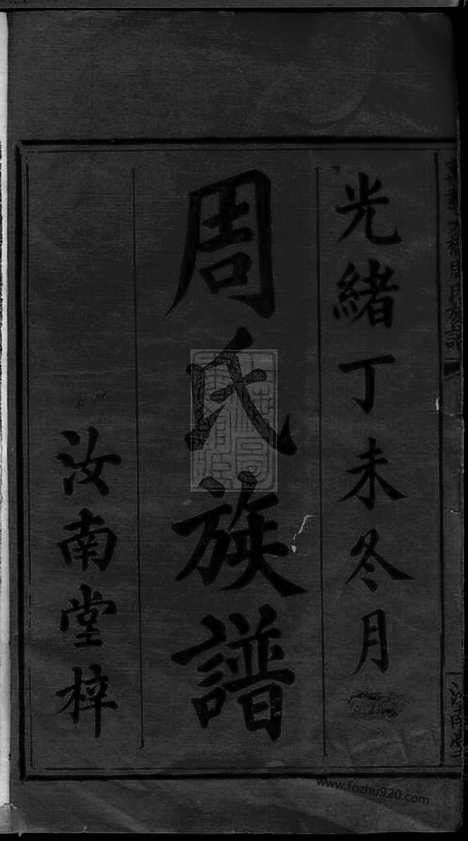 光緒丁未冬月
周氏族譜
汝南堂梓
www.fozhu920.com